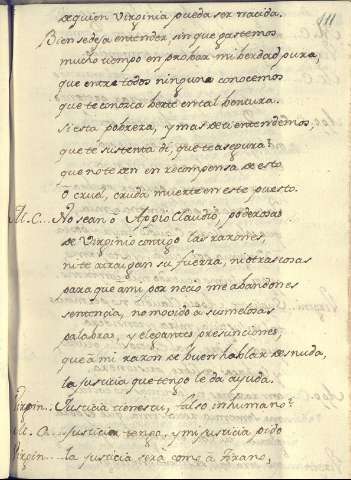 111
de quien Virginia pueda ser nacida.
Bien se deja entender, sin que gastemos
mucho tiempo en probar mi berdad pura,
que entre todos ninguno conocemos
que te conozca berte en tal bentura.
si esta pobreza, y mas de ti entendemos,
que te sustenta di, que te asegura?
que no te den en recompensa de esto
o cruel, cruda muerte en este puesto.
M. C... No sean ò Appio Claudio, poderosas
de Virginio contigo las razones,
ni te atraigan su fuerza, ni otras cosas
para que à mi por necio me abandones
sentencia, no movido a sus melosas
palabras, y elegantes presunciones,
que à mi razon de buen hablar desnuda,
la justicia que tengo le da ayuda.
Virgin... Justicia tienes tu, falso inhumano?
M. C.... justicia tengo, y mi justicia pido
Virgin... la justicia será como à tirano,